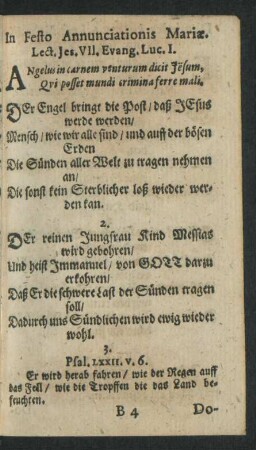 In Festo Annunciationis Mariæ.
Lect. Jes. VII. Evang. Luc. I.
ANgelus in carnem venturum dicit Jesum,
Qvi posset mundi crimina ferre mali.
DEr Engel bringt die Post / daß JEsus
werde werden /
Mensch / wie wir alle sind / und auff der bösen
Erden
Die Sünden aller Welt zu tragen nehmen
an /
Die sonst kein Sterblicher loß wieder wer-
den kan.
2.
DEr reinen Jungfrau Kind Messias
wird gebohren /
Und heist Immanuel / von GOTT darzu
erkohren /
Daß Er die schwere Last der Sünden tragen
soll /
Dadurch uns Sündlichen wird ewig wieder
wohl.
3.
Psal. LXXII. v. 6.
Er wird herab fahren / wie der Regen auff
das Fell / wie die Tropffen die das Land be-
feuchten.
B 4 Do-